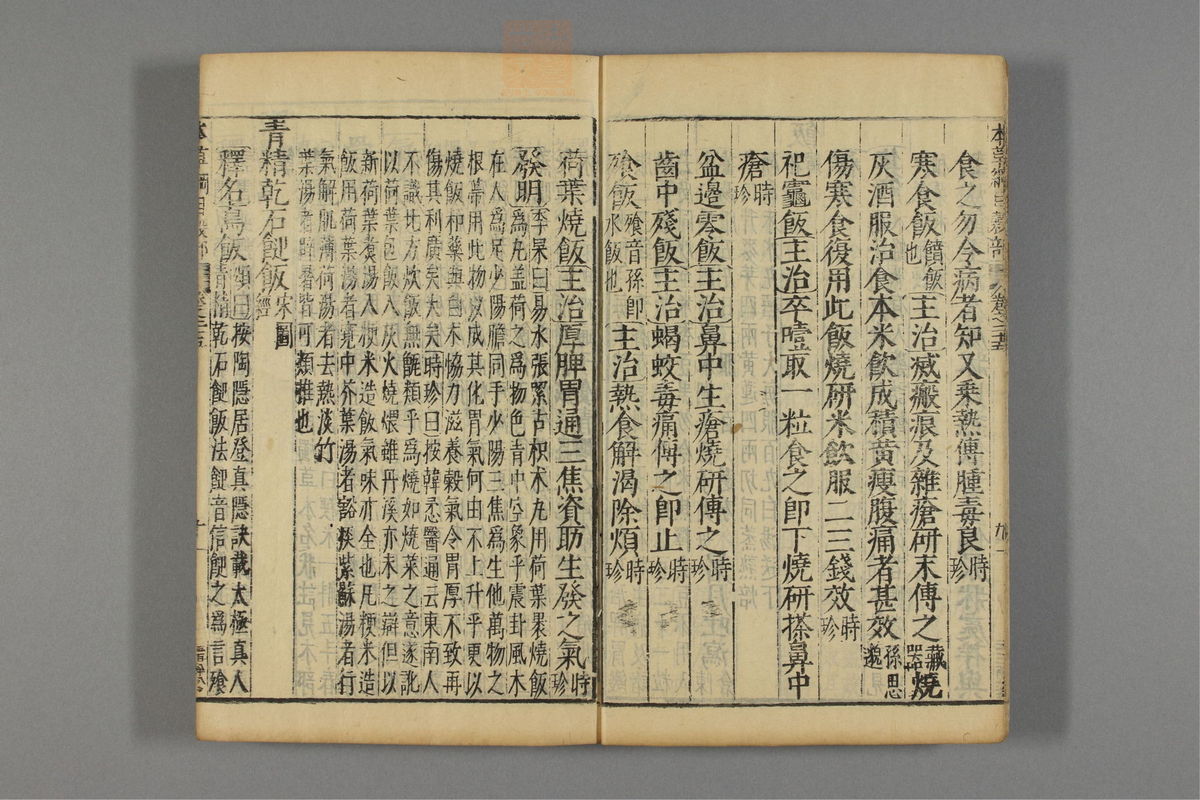 食之勿令病者知又乘熱傅腫毒良時珍
寒食飯饙飯也主治滅瘢痕及雜瘡研末傅之藏器燒
灰酒服治食本米飲成積黃瘦腹痛者甚效孫思邈
傷寒食復用此飯燒研米飲服二三錢效時珍
祀竈飯主治卒噎取一粒食之卽下燒研搽鼻中
瘡時珍
盆邊零飯主治鼻中生瘡燒研傅之時珍
齒中殘飯主治蝎蛟毒痛傅之卽止時珍
飧飯飧音孫卽水飯也主治熱食解渴除煩時珍
荷葉燒飯主治厚脾胃通三焦資助生發之氣時珍
發明李杲曰易水張潔古枳朮丸用荷葉裹燒飯
爲丸盖荷之爲物色青中空象乎震卦風木
在人爲足少陽膽同手少陽三焦爲生化萬物之
根蔕用此物以成其化胃氣何由不上升乎更以
燒飯和藥與白朮協力滋養穀氣令胃厚不致再
傷其利廣矣大矣時珍曰按韓𢘅醫通云東南人
不識北方炊飯無甑類乎爲燒如燒菜之意遂訛
以荷葉包飯入灰火燒煨雖丹溪亦未之辯但以
新荷葉煮湯入粳米造飯氣味亦全也凡粳米造
飯用荷葉湯者寬中芥葉湯者豁痰紫蘇湯者行
氣解肌薄荷湯者去熱淡竹
葉湯者辟暑皆可類推也
青精乾石䭀飯宋圖經
釋名烏飯頌曰按陶隱居登真隱訣載太極真人
青精乾石䭀飯法䭀音信䭀之爲言飧